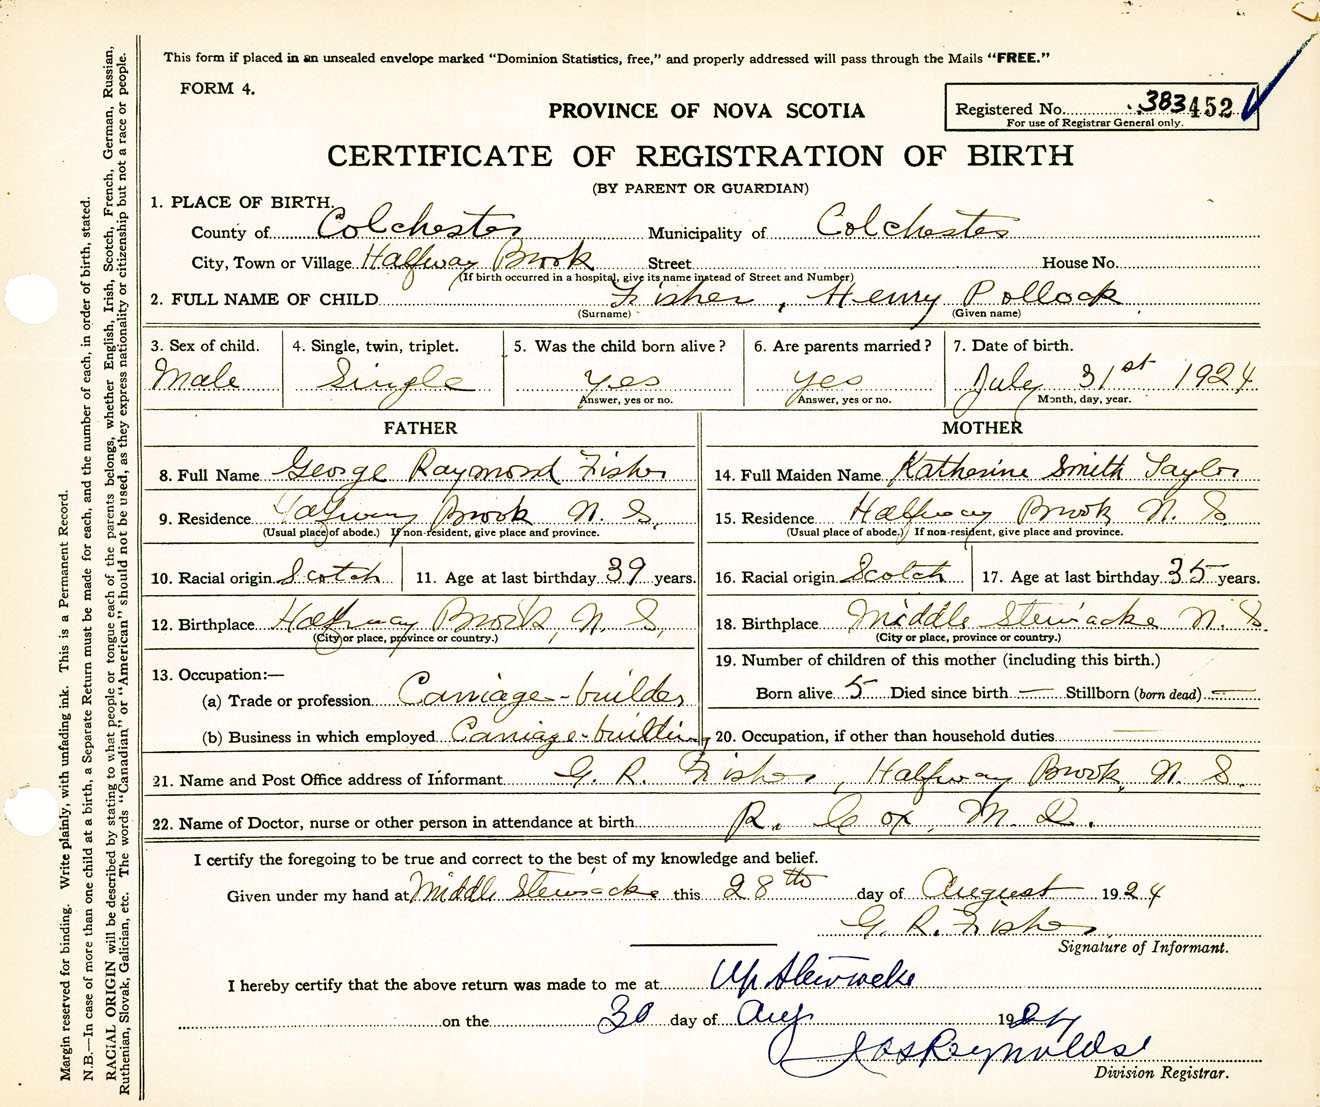 This form if placed in an unsealed envelope marked "Dominion Statistics, free," and properly addressed will pass through the Mails "FREE."
FORM 4.
PROVINCE OF NOVA SCOTIA
Registered No. 383452
For use of Registrar General only.
CERTIFICATE OF REGISTRATION OF BIRTH
(BY PARENT OR GUARDIAN)
1. PLACE OF BIRTH.
County of Colchester Municipality of Colchester
City, Town or Village Halfway Brook Street House No.
(If birth occurred in a hospital, give its name instead of Street and Number)
2. FULL NAME OF CHILD Fisher, Henry Pollock
(Surname) (Given name)
3. Sex of child. 4. Single, twin, triplet. 5. Was the child born alive? 6. Are parents married? 7. Date of birth.
Male Single Yes Yes July 31st 1924
Answer, yes or no. Answer, yes or no. Month, day, year.
FATHER MOTHER
8. Full Name George Raymond Fisher 14. Full Maiden Name Katherine Smith Taylor
9. Residence Halfway Brook N. S. 15. Residence Halfway Brook N. S.
(Usual place of abode.) If non-resident, give place and province. (Usual place of abode.) If non-resident, give place and province.
10. Racial origin Scotch 11. Age at last birthday 39 years. 16. Racial origin Scotch 17. Age at last birthday 35 years.
12. Birthplace Halfway Brook, N. S. 18. Birthplace Middle Stewiacke N. S.
(City or place, province or country.) (City or place, province or country.)
19. Number of children of this mother (including this birth.)
13. Occupation:—
(a) Trade or profession Carriage-builder Born alive 5 Died since birth — Stillborn (born dead) —
(b) Business in which employed Carriage-building 20. Occupation, if other than household duties —
21. Name and Post Office address of Informant G. R. Fisher, Halfway Brook, N. S.
22. Name of Doctor, nurse or other person in attendance at birth R. Cox, M. D.
I certify the foregoing to be true and correct to the best of my knowledge and belief.
Given under my hand at Middle Stewiacke this 28th day of August 1924
G. R. Fisher
Signature of Informant.
I hereby certify that the above return was made to me at Up Stewiacke
on the 30 day of Aug 1924
Jas Reynolds
Division Registrar.
Margin reserved for binding. Write plainly, with unfading ink. This is a Permanent Record.
N.B.—In case of more than one child at a birth, a Separate Return must be made for each, and the number of each, in order of birth, stated.
RACIAL ORIGIN will be described by stating to what people or tongue each of the parents belongs, whether English, Irish, Scotch, French, German, Russian,
Ruthenian, Slovak, Galician, etc. The words "Canadian" or "American" should not be used, as they express nationality or citizenship but not a race or people.